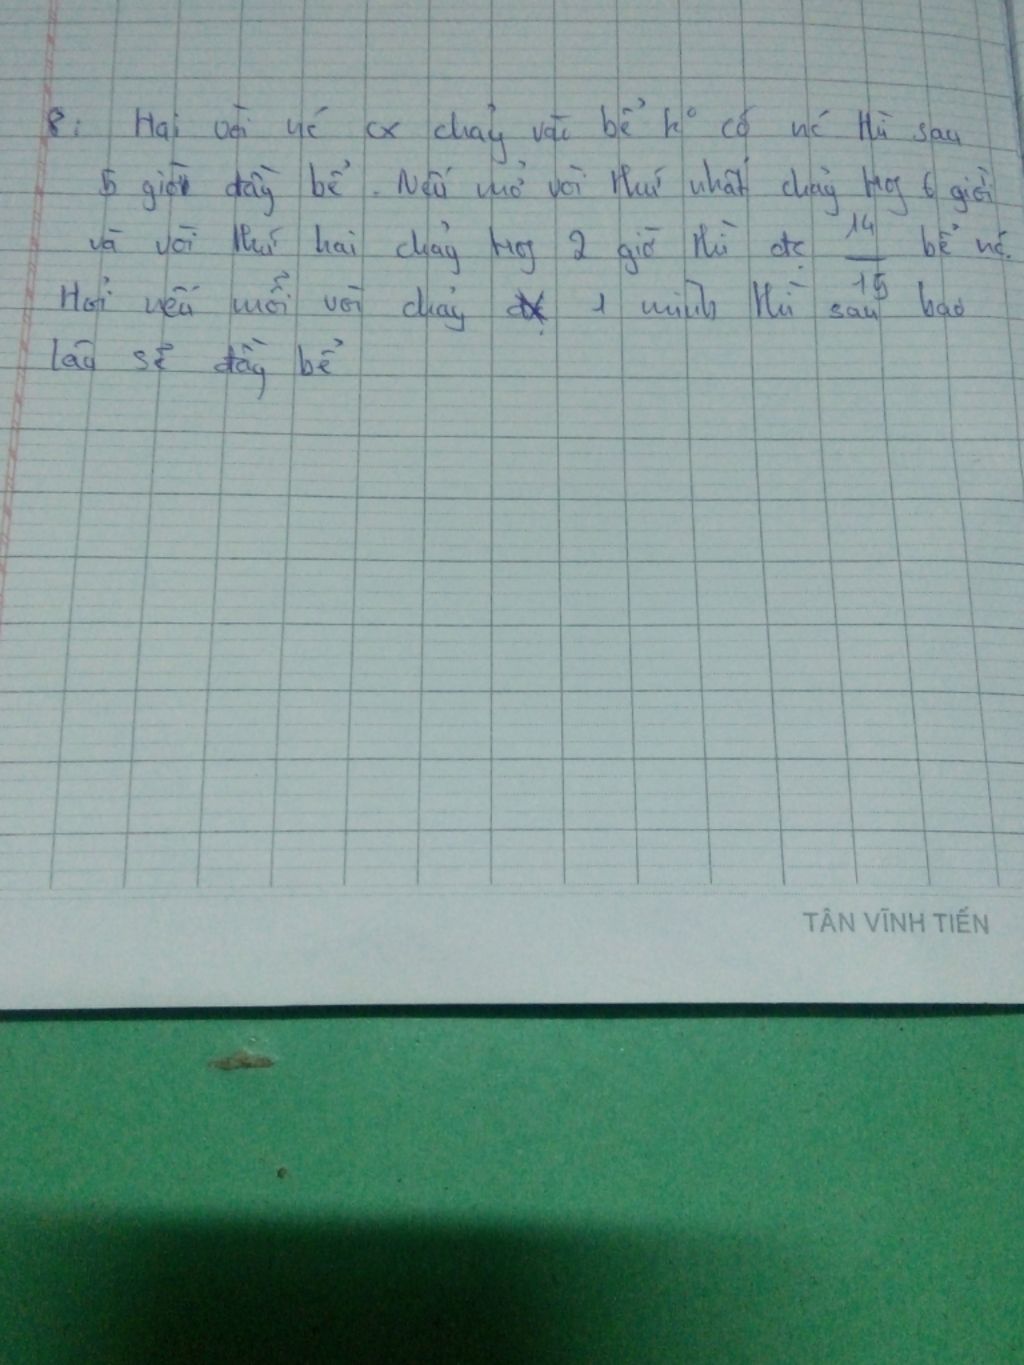 8: Hai vòi nć cx chảy vào bể ko có nć thì sau
5 giờ đầy bể. Nếu mở vòi thứ nhất chảy trog 6 giờ
và vòi thứ hai chảy trog 2 giờ thì đc 14/15 bể nć.
Hỏi nếu mỗi vòi chảy 1 mình thì sau bao
lâu sẽ đầy bể
TÂN VĨNH TIẾN